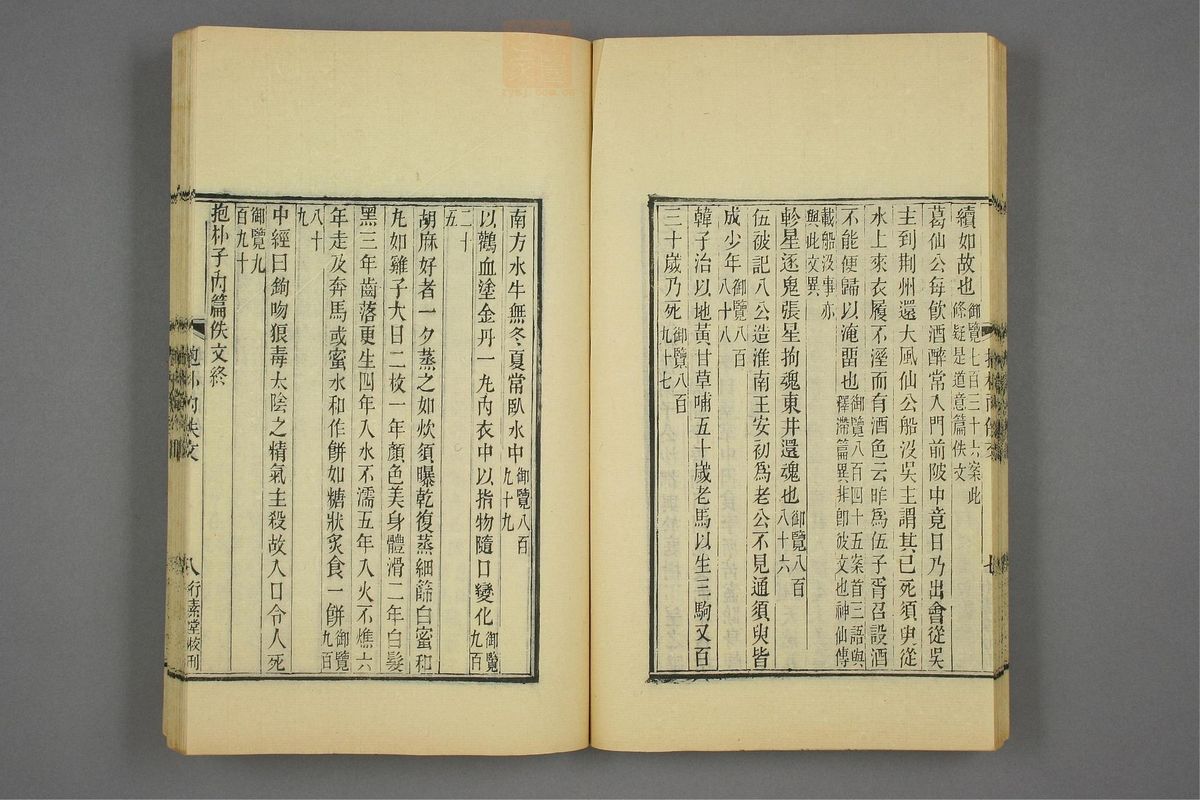 續如故也御覽七百三十六案此條疑是道意篇佚文
葛仙公每飮酒醉常入門前陂中竟日乃出會從吳
主到荆州還大風仙公船沒吳主謂其已死須臾從
水上來衣履不溼而有酒色云昨爲伍子胥召設酒
不能便歸以淹畱也御覽八百四十五案首三語與釋滯篇異非卽彼文也神仙傳
載船沒事亦與此文異
軫星逐鬼張星拘魂東井還魂也御覽八百八十六
伍被記八公造淮南王安初爲老公不見通須臾皆
成少年御覽八百八十八
韓子治以地黃甘草哺五十歲老馬以生三駒又百
三十歲乃死御覽八百九十七
南方水牛無冬夏常臥水中御覽八百九十九
以鸛血塗金丹一丸內衣中以指物隨口變化御覽九百
二十五
胡麻好者一夕蒸之如炊須曝乾復蒸細篩白蜜和
丸如雞子大日二枚一年顏色美身體滑二年白髮
黑三年齒落更生四年入水不濡五年入火不燋六
年走及奔馬或蜜水和作餅如糖狀炙食一餅御覽九百
八十九
中經曰鉤吻狼毒太陰之精氣主殺故入口令人死
御覽九百九十
抱朴子內篇佚文終
抱朴內佚文
八
行素堂校刊